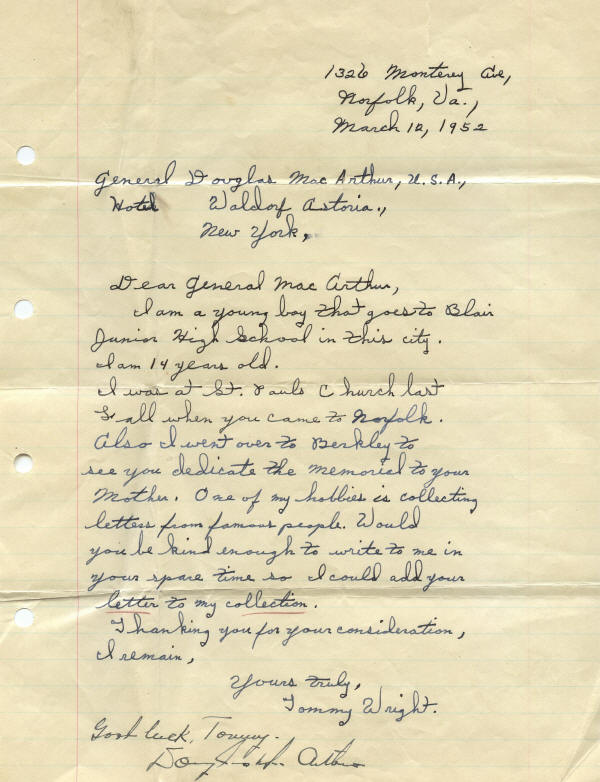 1326 Monterey Ave,
Norfolk, Va.,
March 12, 1952
General Douglas Mac Arthur, U.S.A.,
Hotel Waldorf Astoria.,
New York,
Dear General Mac Arthur,
I am a young boy that goes to Blair
Junior High School in this city.
I am 14 years old.
I was at St. Pauls Church last
Fall when you came to Norfolk.
Also I went over to Berkley to
see you dedicate the memorial to your
Mother. One of my hobbies is collecting
letters from famous people. Would
you be kind enough to write to me in
your spare time so I could add your
letter to my collection.
Thanking you for your consideration,
I remain,
Yours truly,
Tommy Wright.
Good luck, Tommy.
Douglas MacArthur